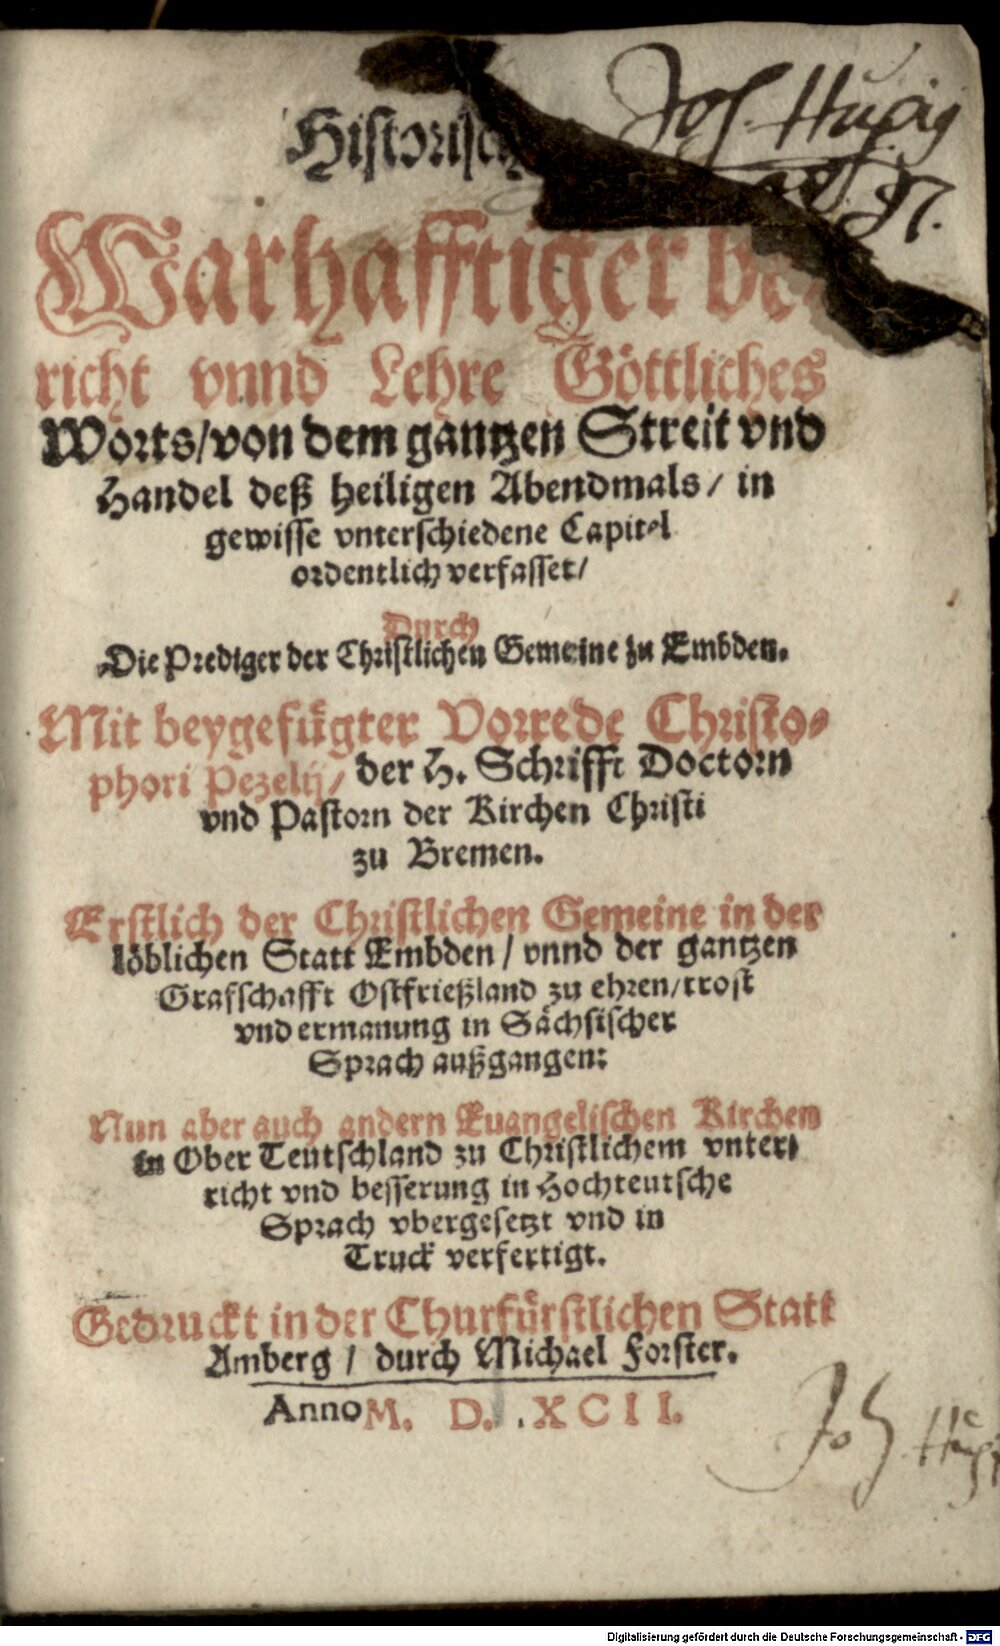 Joh. Hugig
Historisch
Warhafftiger be-
richt vnnd Lehre Göttliches
Worts/von dem gantzen Streit vnd
Handel deß heiligen Abendmals/ in
gewisse vnterschiedene Capitel
ordentlich verfasset/
Durch
Die Prediger der Christlichen Gemeine zu Embden.
Mit beygefügter Vorrede Christo-
phori Pezelij/ der H. Schrifft Doctorn
vnd Pastorn der Kirchen Christi
zu Bremen.
Erstlich der Christlichen Gemeine in der
löblichen Statt Embden/ vnnd der gantzen
Grafschafft Ostfrießland zu ehren/trost
vnd ermanung in Sächsischer
Sprach außgangen:
Nun aber auch andern Euangelischen Kirchen
in Ober Teutschland zu Christlichem vnter-
richt vnd besserung in Hochteutsche
Sprach vbergesetzt vnd in
Truck verfertigt.
Gedruckt in der Churfürstlichen Statt
Amberg/ durch Michael Forster.
Anno M. D. XCII.
Joh.
Digitalisierung gefördert durch die Deutsche Forschungsgemeinschaft - DFG